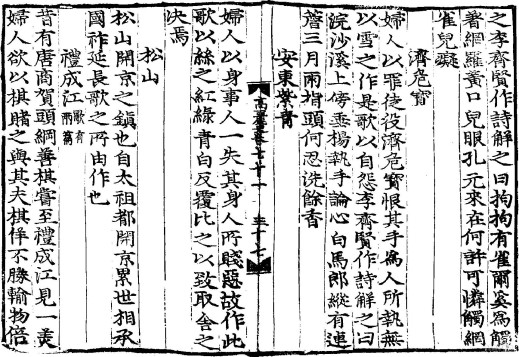 之李齊賢作詩解之曰拘拘有雀爾奚爲觸
著網羅黃口兒眼孔元來在何許可憐觸網
雀兒癡
濟危寶
婦人以罪徒役濟危寶恨其手爲人所執無
以雪之作是歌以自怨李齊賢作詩解之曰
浣沙溪上傍垂楊執手論心白馬郎縱有連
簷三月雨指頭何忍洗餘香
安東紫青
七十一
婦人以身事人一失其身人所賤惡故作此
歌以絲之紅綠青白反覆比之以致取舍之
決焉
松山
松山開京之鎮也自太祖都開京累世相承
國祚延長歌之所由作也
禮成江歌有兩篇
昔有唐商賀頭綱善棋嘗至禮成江見一美
婦人欲以棋賭之與其夫棋佯不勝輸物倍